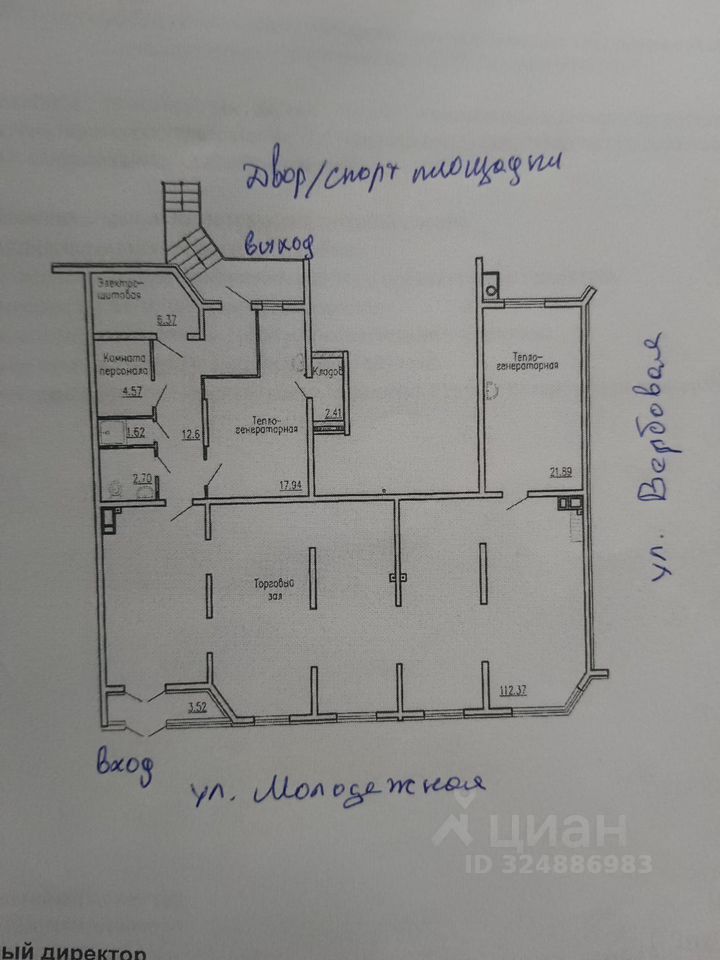 Двор/спорт площадки
выход
Электро-
щитовая
6.37
Комната
персонала
4.57
1.62
12.6
2.70
Тепло-
генераторная
17.94
Кладов.
2.41
Тепло-
генераторная
21.89
ул. Вербовая
Торговый
зал
112.37
3.52
вход
ул. Молодежная
циан
ID 324886983
ый директор